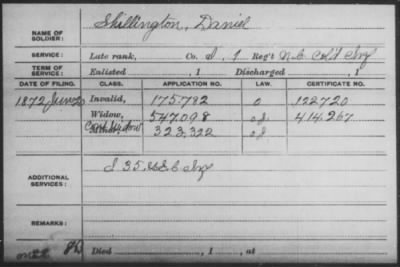 NAME OF SOLDIER: Skillington, Daniel
SERVICE: Late rank, Co. I, 1 Reg't N.C. Col'd Inf
TERM OF SERVICE: Enlisted , 1 Discharged , 1
DATE OF FILING. CLASS. APPLICATION NO. LAW. CERTIFICATE NO.
1872 June Invalid, 175.782 O 122720
Widow, 547.098 414.267
Cont Widow Minor, 323,322
ADDITIONAL SERVICES: I 35 U.S.C Inf
REMARKS:
Died , 1 , at